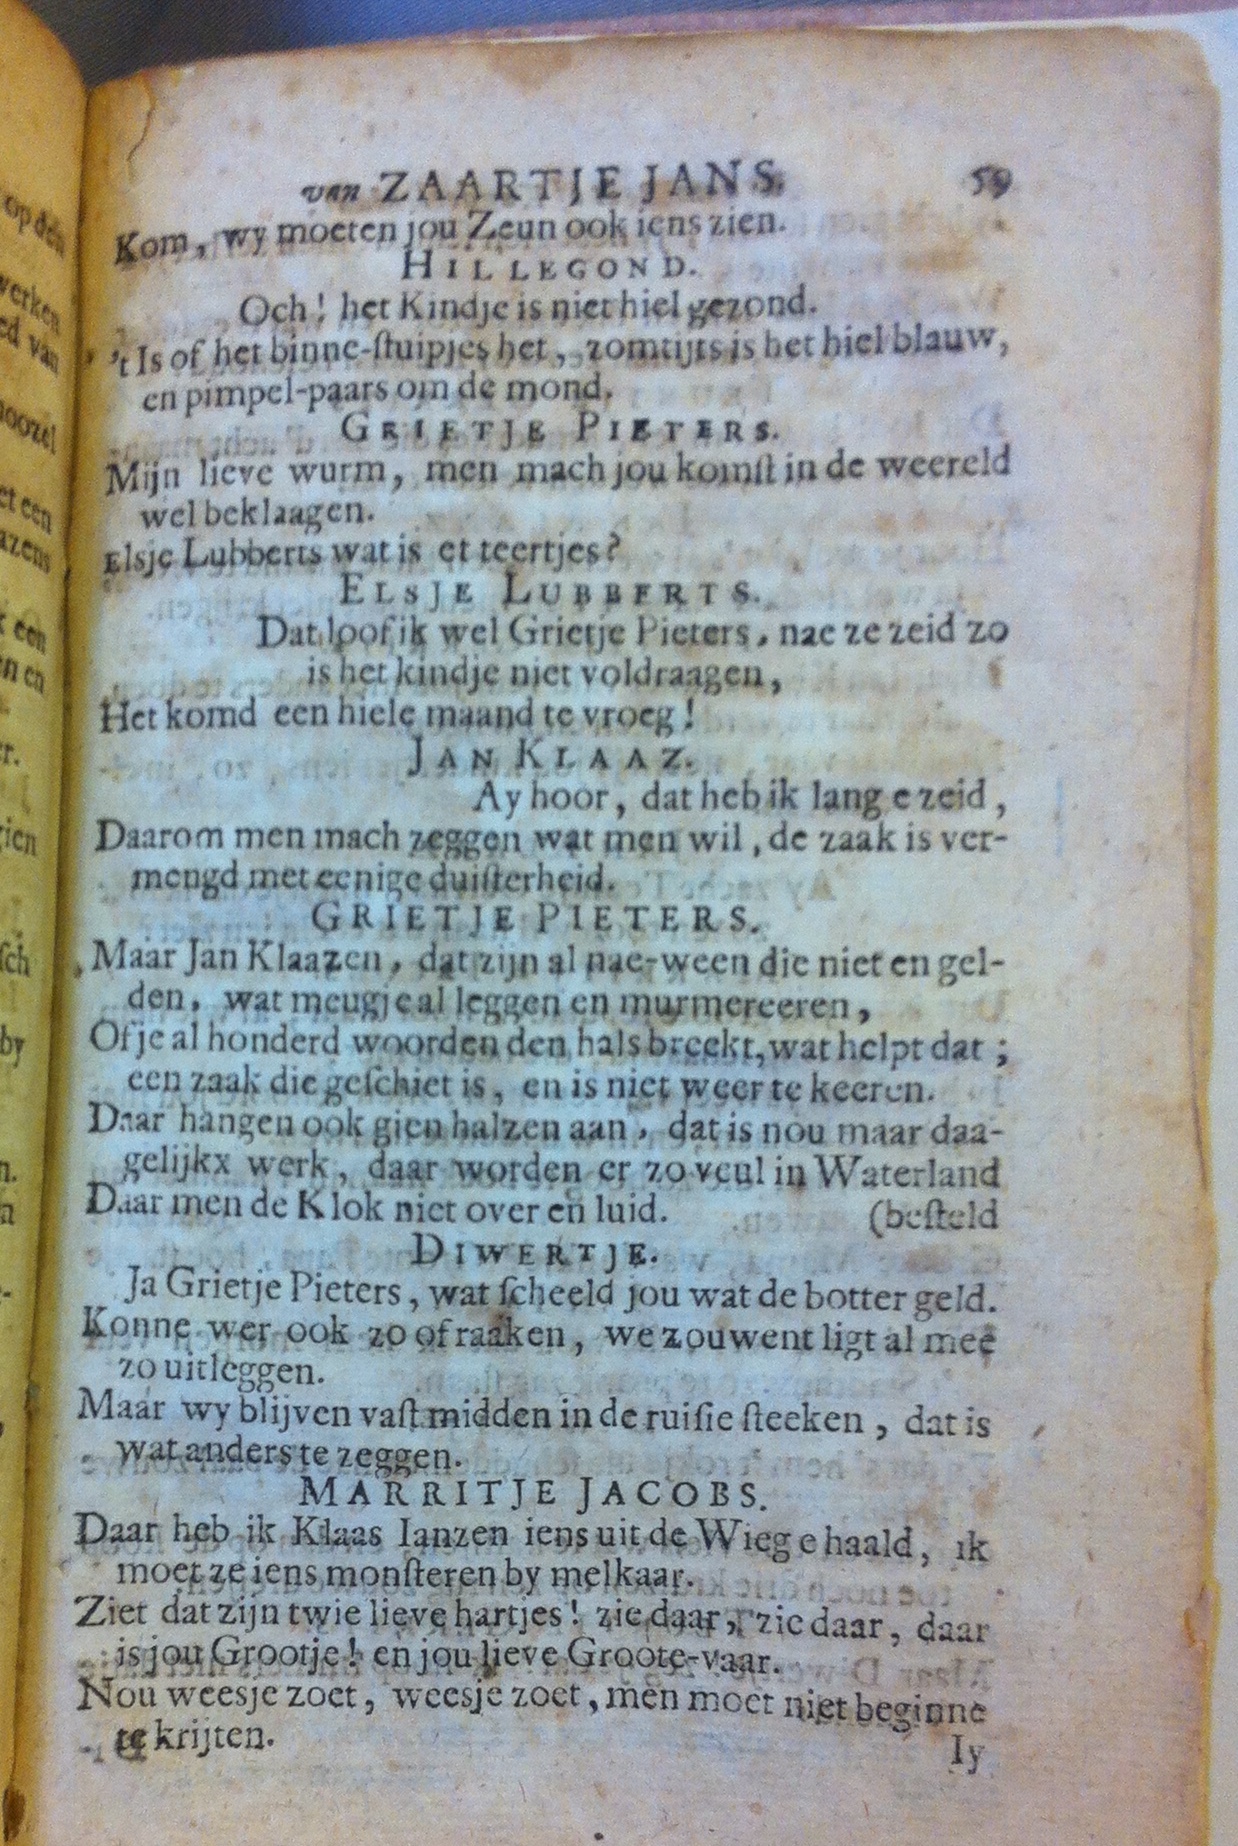 van ZAARTJE JANS. 59
Kom, wy moeten jou Zeun ook iens zien.
HILLEGOND.
Och! het Kindje is niet hiel gezond.
't Is of het binne-ſtuipjes het, zomtijts is het hiel blauw,
en pimpel-paars om de mond.
GRIETJE PIETERS.
Mijn lieve wurm, men mach jou komſt in de weereld
wel beklaagen.
Elsje Lubberts wat is et teertjes?
ELSJE LUBBERTS.
Dat loof ik wel Grietje Pieters, nae ze zeid zo
is het kindje niet voldraagen,
Het komd een hiele maand te vroeg!
JAN KLAAZ.
Ay hoor, dat heb ik lang e zeid,
Daarom men mach zeggen wat men wil, de zaak is ver-
mengd met eenige duiſterheid.
GRIETJE PIETERS.
Maar Jan Klaazen, dat zijn al nae-ween die niet en gel-
den, wat meugje al leggen en murmereeren,
Of je al honderd woorden den hals breekt, wat helpt dat;
een zaak die geſchiet is, en is niet weer te keeren.
Daar hangen ook gien halzen aan, dat is nou maar daa-
gelijkx werk, daar worden er zo veul in Waterland
Daar men de Klok niet over en luid. (beſteld
DIWERTJE.
Ja Grietje Pieters, wat ſcheeld jou wat de botter geld.
Konne wer ook zo of raaken, we zouwent ligt al mee
zo uitleggen.
Maar wy blijven vaſt midden in de ruiſie ſteeken, dat is
wat anders te zeggen.
MARRITJE JACOBS.
Daar heb ik Klaas Ianzen iens uit de Wieg e haald, ik
moet ze iens monſteren by melkaar.
Ziet dat zijn twie lieve hartjes! zie daar, zie daar, daar
is jou Grootje! en jou lieve Groote-vaar.
Nou weesje zoet, weesje zoet, men moet niet beginne
te krijten.
Iy